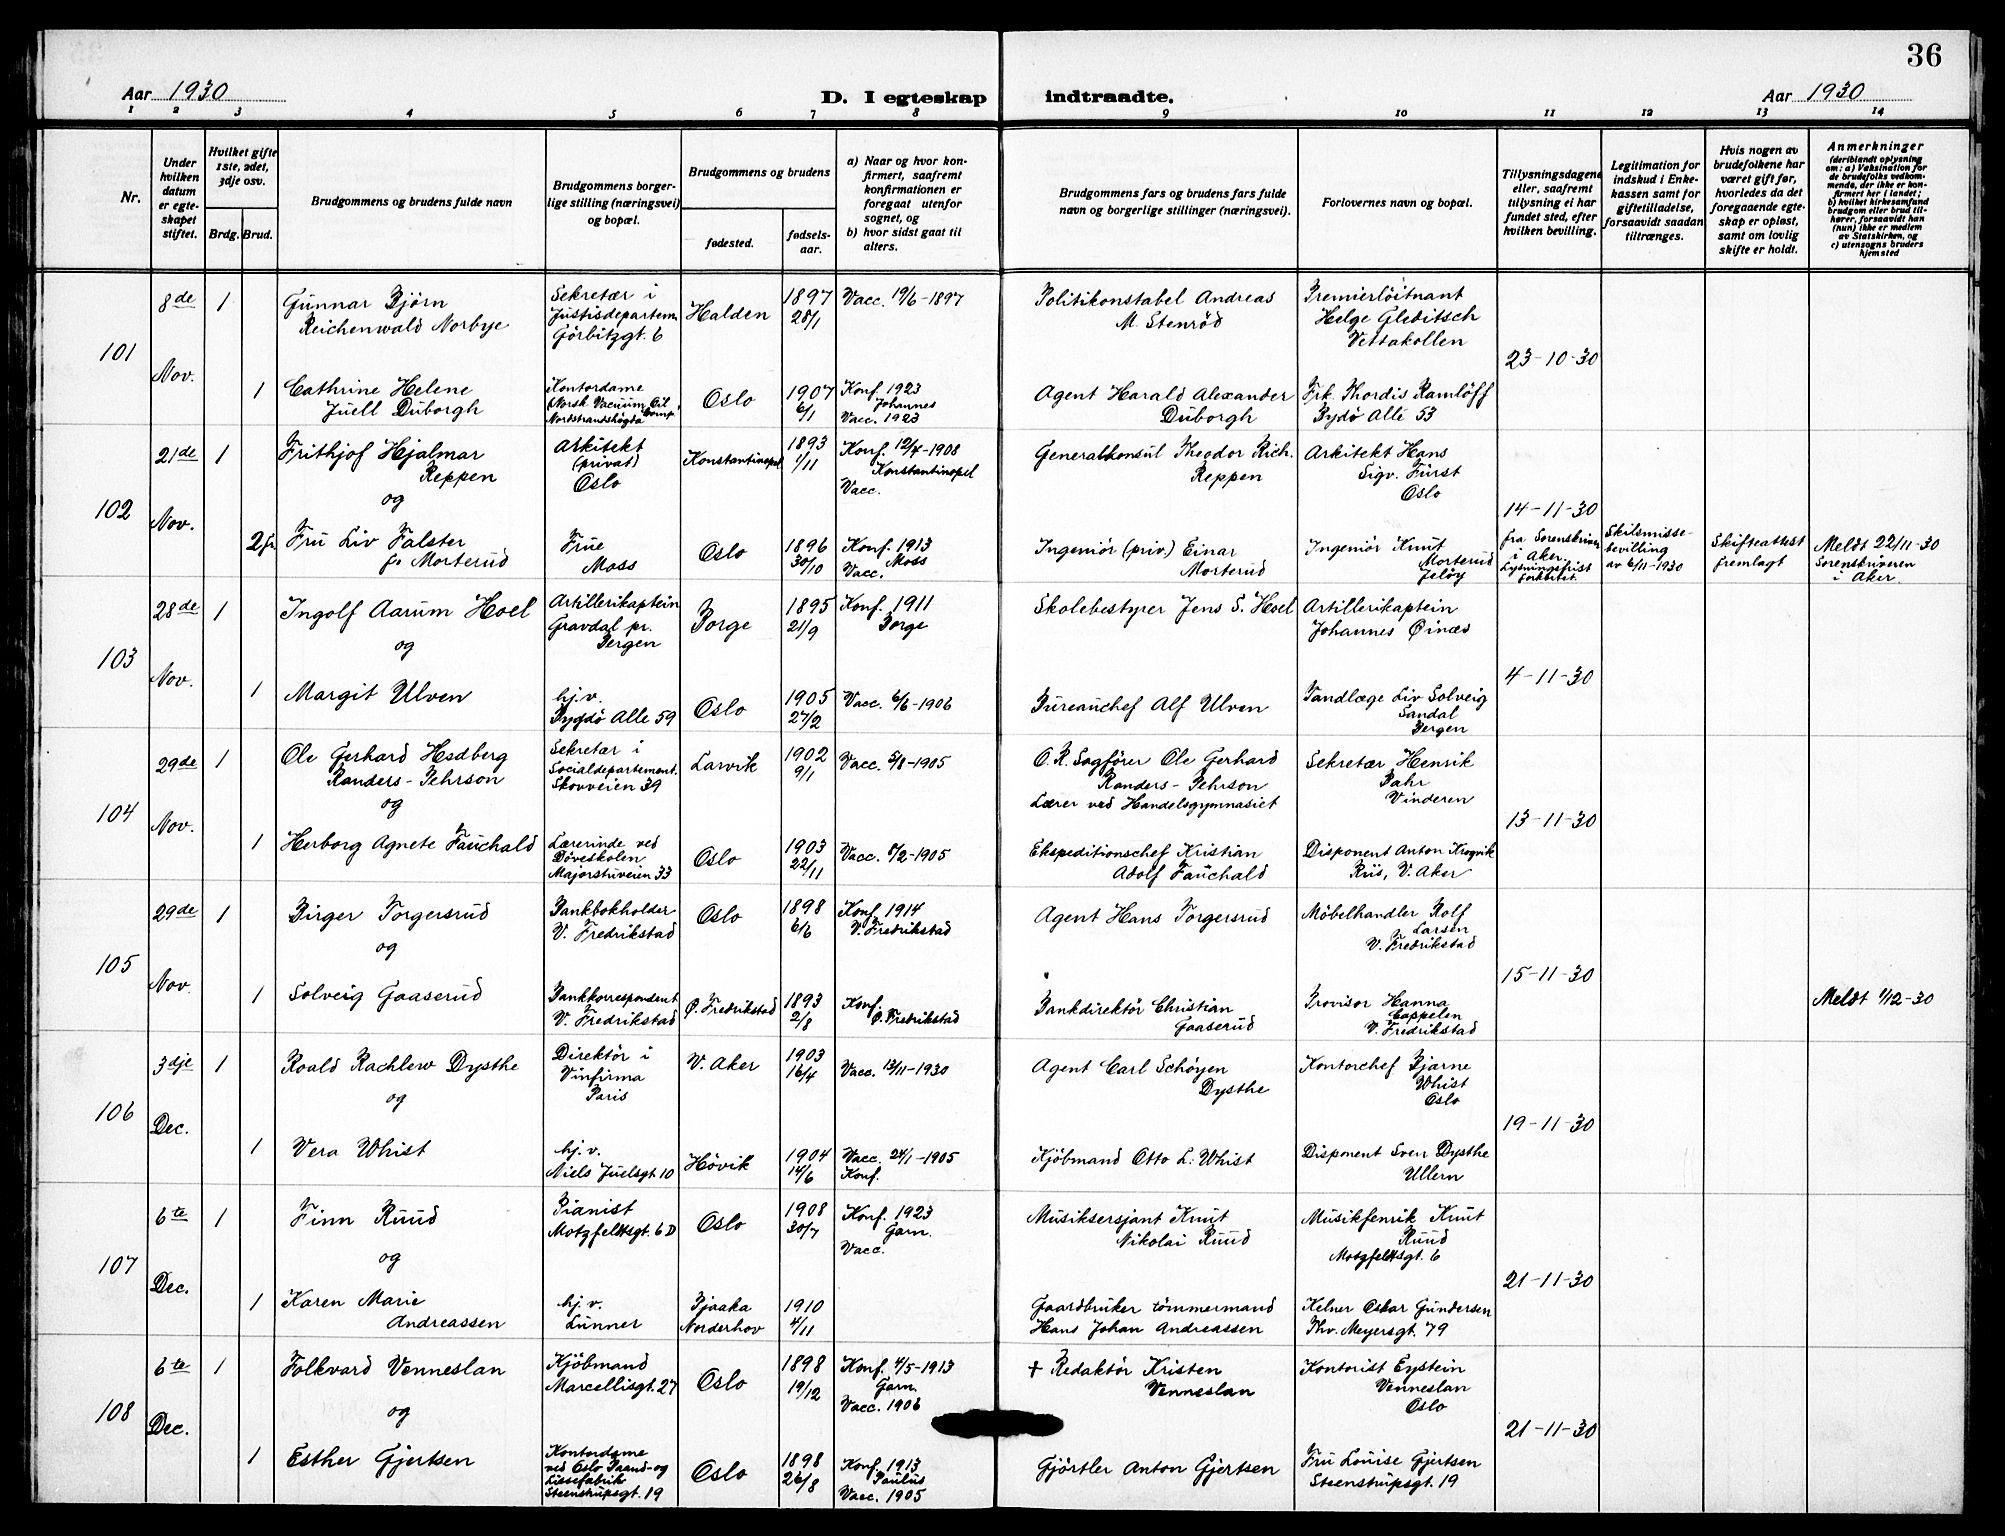 36
Aar 1930
D. I egteskap indtraadte.
Aar 1930
1 2 3 4 5 6 7 8 9 10 11 12 13 14
Nr.
Under hvilken datum er egteskapet stiftet.
Hvilket gifte 1ste, 2det, 3dje osv.
Brdg. Brud.
Brudgommens og brudens fulde navn
Brudgommens borgerlige stilling (næringsvei) og bopæl.
Brudgommens og brudens
fødested.
fødselsaar.
a) Naar og hvor konfirmert, saafremt konfirmationen er foregaat utenfor sognet, og
b) hvor sidst gaat til alters.
Brudgommens fars og brudens fars fulde navn og borgerlige stillinger (næringsvei).
Forlovernes navn og bopæl.
Tillysningsdagene eller, saafremt tillysning ei har fundet sted, efter hvilken bevilling.
Legitimation for indskud i Enkekassen samt for giftetilladelse, forsaavidt saadan tiltrænges.
Hvis nogen av brudefolkene har været gift før, hvorledes da det foregaaende egteskap er opløst, samt om lovlig skifte er holdt.
Anmerkninger
(deriblandt oplysning om: a) Vaksination for de brudefolks vedkommende, der ikke er konfirmert her i landet; b) hvilket kirkesamfund brudgom eller brud tilhører, forsaavidt han (hun) ikke er medlem av Statskirken, og c) utensogns bruders hjemsted
101
8de Nov.
1
Gunnar Bjørn
Reichenwald Norbye
Sekretær i
Justisdepartem.
Görbitzgt. 6
Halden
1897
28/1
Vacc. 19/6-1897
Politikonstabel Andreas
M. Stenröd
Premierlöitnant
Helge Gleditsch
Vettakollen
23-10-30
1
Cathrine Helene
Juell Duborgh
Kontordame
(Norsk Vacuum Oil Comp.)
Nordstrandshögda
Oslo
1907
6/1
Konf. 1923
Johannes
Vacc. 1923
Agent Harald Alexander
Duborgh
Frk. Thordis Ramlöff
Bydö Alle 53
102
21de Nov.
1
Frithjof Hjalmar
Reppen
og
Arkitekt
(privat)
Oslo
Konstantinopel
1893
1/11
Konf. 12/4-1908
Konstantinopel
Vacc.
Generalkonsul Theodor Rich.
Reppen
Arkitekt Hans
Sigv. Fürst
Oslo
14-11-30
2 fr.
Fru Liv Falster
f. Morterud
Frue
Moss
Oslo
1896
30/10
Konf. 1913
Moss
Vacc.
Ingeniör (priv.) Einar
Morterud
Ingeniör Knut
Morterud
Jelöy
fra Sorenskriver
i Aker.
Lysningsfrist
forkortet.
Skilsmisse-
bevilling
av 6/11-1930
Skifteattest
fremlagt
Meldt 22/11-30
Sorenskriveren
i Aker
103
28de Nov.
1
Ingolf Aarum Hoel
og
Artillerikaptein
Gravdal pr.
Bergen
Borge
1895
21/9
Konf. 1911
Borge
Skolebestyrer Jens S. Hoel
Artillerikaptein
Johannes Öinæs
4-11-30
1
Margit Ulven
hj.v.
Bygdö Alle 59
Oslo
1905
27/2
Vacc. 6/6-1906
Bureauchef Alf Ulven
Tandlæge Liv Solveig
Sandal
Bergen
104
29de Nov.
1
Ole Gerhard Hedberg
Randers-Pehrson
og
Sekretær i
Socialdepartement.
Skovveien 39
Larvik
1902
9/1
Vacc. 5/8-1905
O.R. Sagförer Ole Gerhard
Randers-Pehrson
Lærer ved Handelsgymnasiet
Sekretær Henrik
Bahr
Vinderen
13-11-30
1
Herborg Agnete Fauchald
Lærerinde ved
Döveskolen
Majorstuveien 33
Oslo
1903
22/11
Vacc. 8/2-1905
Ekspeditionschef Kristian
Adolf Fauchald
Disponent Anton Krogvik
Riis, V. Aker
105
29de Nov.
1
Birger Torgersrud
og
Bankbokholder
V. Fredrikstad
Oslo
1898
6/6
Konf. 1914
V. Fredrikstad
Agent Hans Torgersrud
Möbelhandler Rolf
Larsen
V. Fredrikstad
15-11-30
1
Solveig Gaaserud
Bankkorrespondent
V. Fredrikstad
Ö. Fredrikstad
1893
2/8
Konf.
Ö. Fredrikstad
Bankdirektör Christian
Gaaserud
Provisor Hanna
Cappelen
V. Fredrikstad
Meldt 1/12-30
106
3dje Dec.
1
Roald Rachlew Dysthe
og
Direktör i
Vinfirma
Paris
V. Aker
1903
16/4
Vacc. 13/11-1930
Agent Carl Schöyen
Dysthe
Kontorchef Bjarne
Whist
Oslo
19-11-30
1
Vera Whist
hj.v.
Niels Juelsgt. 10
Hövik
1904
14/6
Vacc. 24/1-1905
Konf.
Kjöbmand Otto L. Whist
Disponent Sven Dysthe
Ullern
107
6te Dec.
1
Finn Ruud
og
Pianist
Motzfeldtsgt. 6 D
Oslo
1908
30/7
Konf. 1923
Garn.
Vacc.
Musiksersjant Knut
Nikolai Ruud
Musikfenrik Knut
Ruud
Motzfeldtsgt. 6
21-11-30
1
Karen Marie
Andreassen
hj.v.
Lunner
Bjaaka
Norderhov
1910
4/11
Gaardbruker tömmermand
Hans Johan Andreassen
Kelner Oskar Gundersen
Thv. Meyersgt. 79
108
6te Dec.
1
Folkvard Venneslan
og
Kjöbmand
Marcellisgt. 27
Oslo
1898
19/12
Konf. 4/5-1913
Garn.
Vacc. 1906
+ Redaktör Kristen
Venneslan
Kontorist Eystein
Venneslan
Oslo
21-11-30
1
Esther Gjertsen
Kontordame
ved Oslo Baand- og
Lissefabrik
Steenstrupsgt. 19
Oslo
1898
26/8
Konf. 1913
Paulus
Vacc. 1905
Gjörtler Anton Gjertsen
Fru Louise Gjertsen
Steenstrupsgt. 19